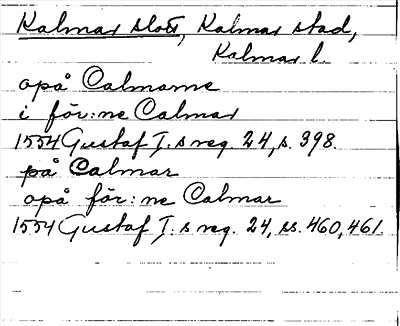 Kalmar slott, Kalmar stad,
Kalmar l.
opå Calmarne
i för:ne Calmar
1554 Gustaf I.s reg. 24, s. 398.
på Calmar
opå för:ne Calmar
1554 Gustaf I.s reg. 24, ss. 460, 461.